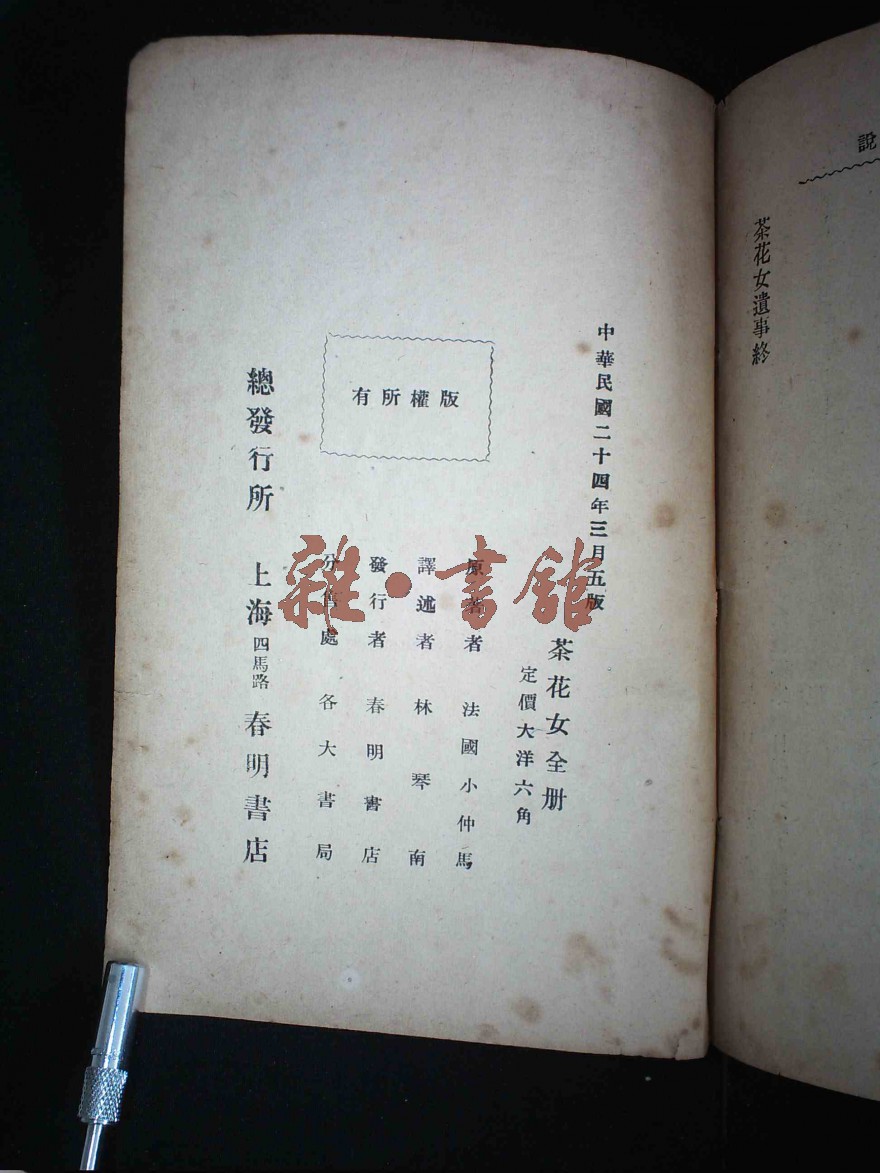 說
茶花女遺事終
中華民國二十四年三月五版
茶花女全册
定價大洋六角
原著者 法國小仲馬
譯述者 林琴南
發行者 春明書店
分售處 各大書局
版權所有
總發行所 上海四馬路春明書店
雜·書館